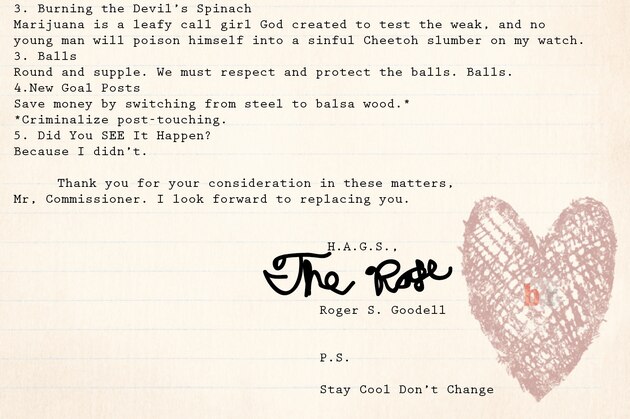 3. Burning the Devil's Spinach
Marijuana is a leafy call girl God created to test the weak, and no
young man will poison himself into a sinful Cheetoh slumber on my watch.
3. Balls
Round and supple. We must respect and protect the balls. Balls.
4.New Goal Posts
Save money by switching from steel to balsa wood.*
*Criminalize post-touching.
5. Did You SEE It Happen?
Because I didn't.
Thank you for your consideration in these matters,
Mr, Commissioner. I look forward to replacing you.
H.A.G.S.,
The Rose
Roger S. Goodell
br
P.S.
Stay Cool Don't Change